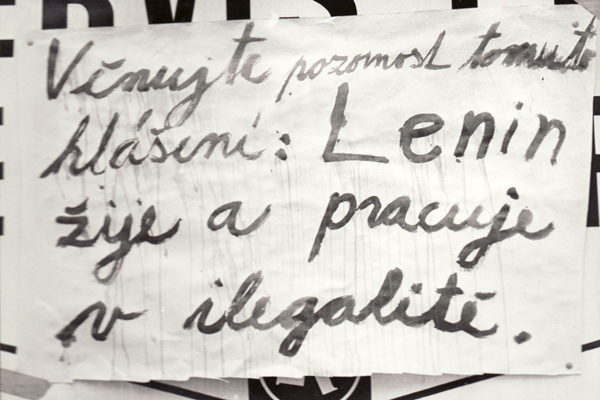 Věnujte pozornost tomuto
hlášení: Lenin
žije a pracuje
v ilegalitě.